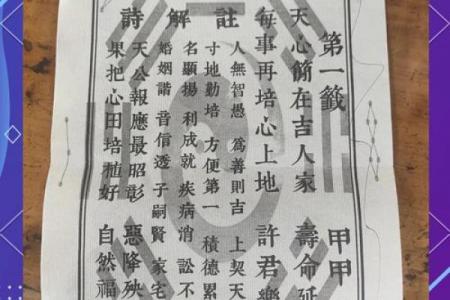 第一籤 甲甲
天心簡在吉人家 壽命延
每事再培心上地 許君樂
註解詩
人無智愚 為善則吉 上契天
寸地勤培 方便第一 積德累
名顯揚 利成就 疾病消 訟不
婚姻諧 音信透 子嗣賢 家宅
天公報應最昭彰 惡降殃
果把心田培植好 自然福